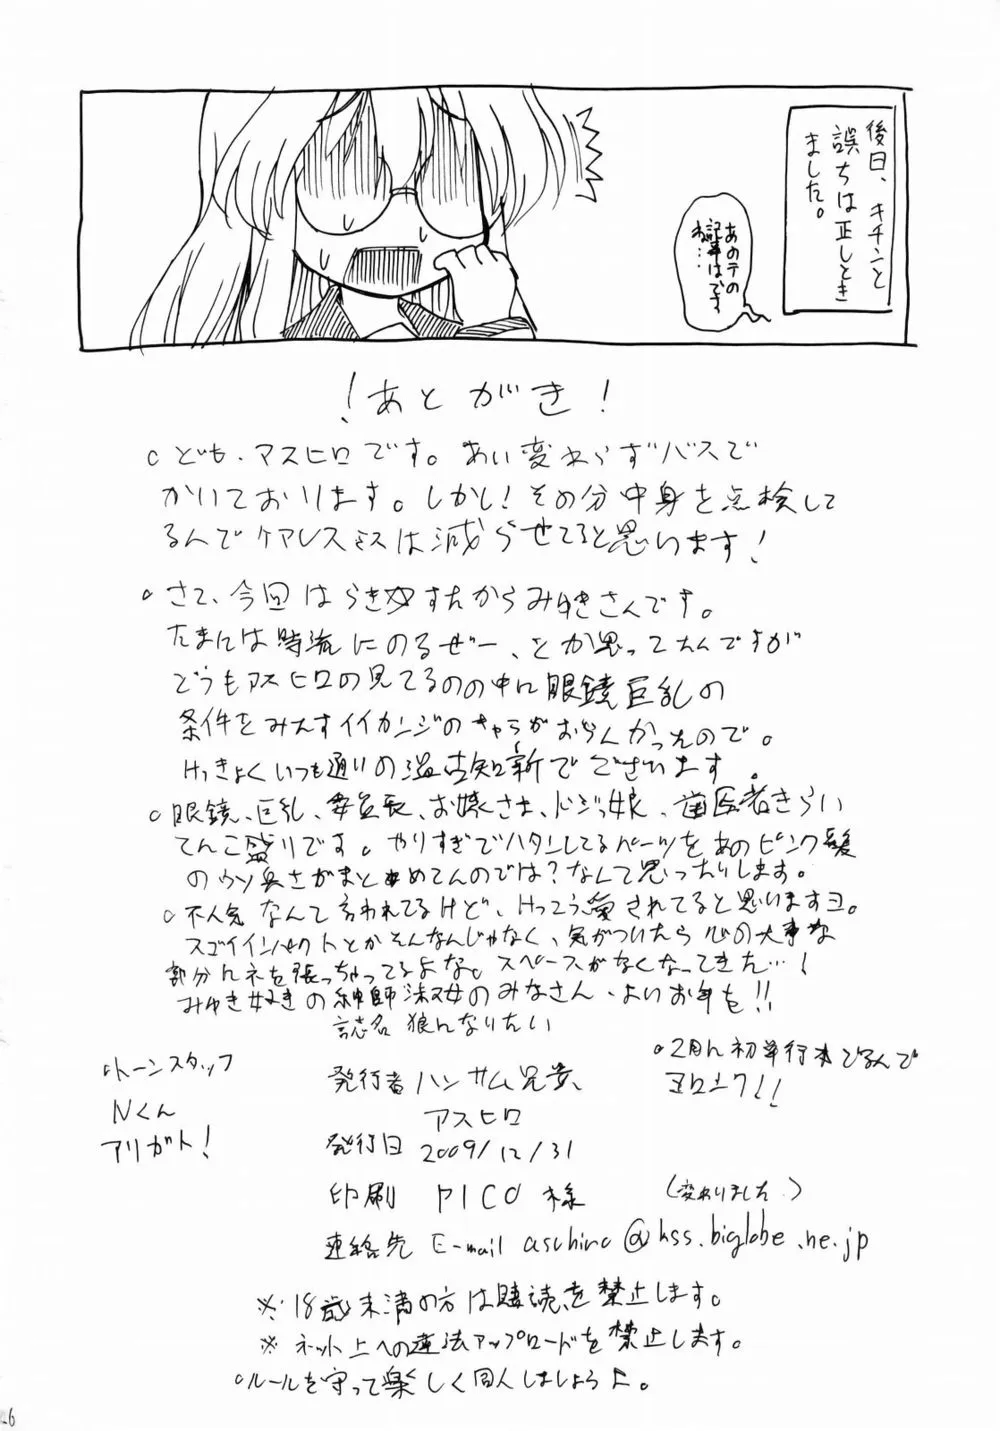 後日、キチンと
誤ちは正しとき
ました。
あのテの
記事はです
ね…
！あとがき！
○ども、アスヒロです。あい変わらずバスで
かいております。しかし！その分中身を点検して
るんでケアレスミスは減らせてると思います！
○さて、今回はらき☆すたからみゆきさんです。
たまには時流にのるぜー、とか思ってたんですが
どうもアスヒロの見てるのの中に眼鏡巨乳の
条件をみたすイイカンジのキャラがおらんかったので。
けっきょくいつも通りの温古知新でございます。
○眼鏡、巨乳、委員長、お嬢さま、ドジッ娘、歯医者きらい
てんこ盛りです。やりすぎでハタンしてるパーツをあのピンク髪
のウソ臭さがまとめてんのでは？なんて思ったりします。
○不人気なんて言われてるけど、けっこう愛されてると思いますヨ。
スゴイインパクトとかそんなんじゃなく、気がついたら心の大事な
部分にネを張っちゃってるよな。スペースがなくなってきた…！
みゆき好きの紳師淑女のみなさん、よいお年を！！
誌名 狼になりたい
○トーンスタッフ
Nくん
アリガト！
発行者 ハンサム兄貴、
アスヒロ
○2月に初単行本でるんで
ヨロシク！！
発行日 2009/12/31
印刷 PICO 様 （変わりました）
連絡先 E-mail asuhiro@kss.biglobe.ne.jp
※18歳未満の方は購読を禁止します。
※ネット上への違法アップロードを禁止します。
○ルールを守って楽しく同人しましょうよ。